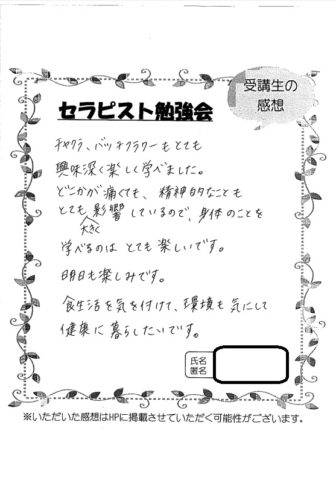 受講生の
感想
セラピスト勉強会
チャクラ、バッチフラワーもとても
興味深く楽しく学べました。
どこかが痛くても、精神的なことも
とても影響しているので、身体のことを
大きく
学べるのはとても楽しいです。
明日も楽しみです。
食生活を気を付けて、環境も気にして
健康に暮らしたいです。
氏名
匿名
※いただいた感想はHPに掲載させていただく可能性がございます。